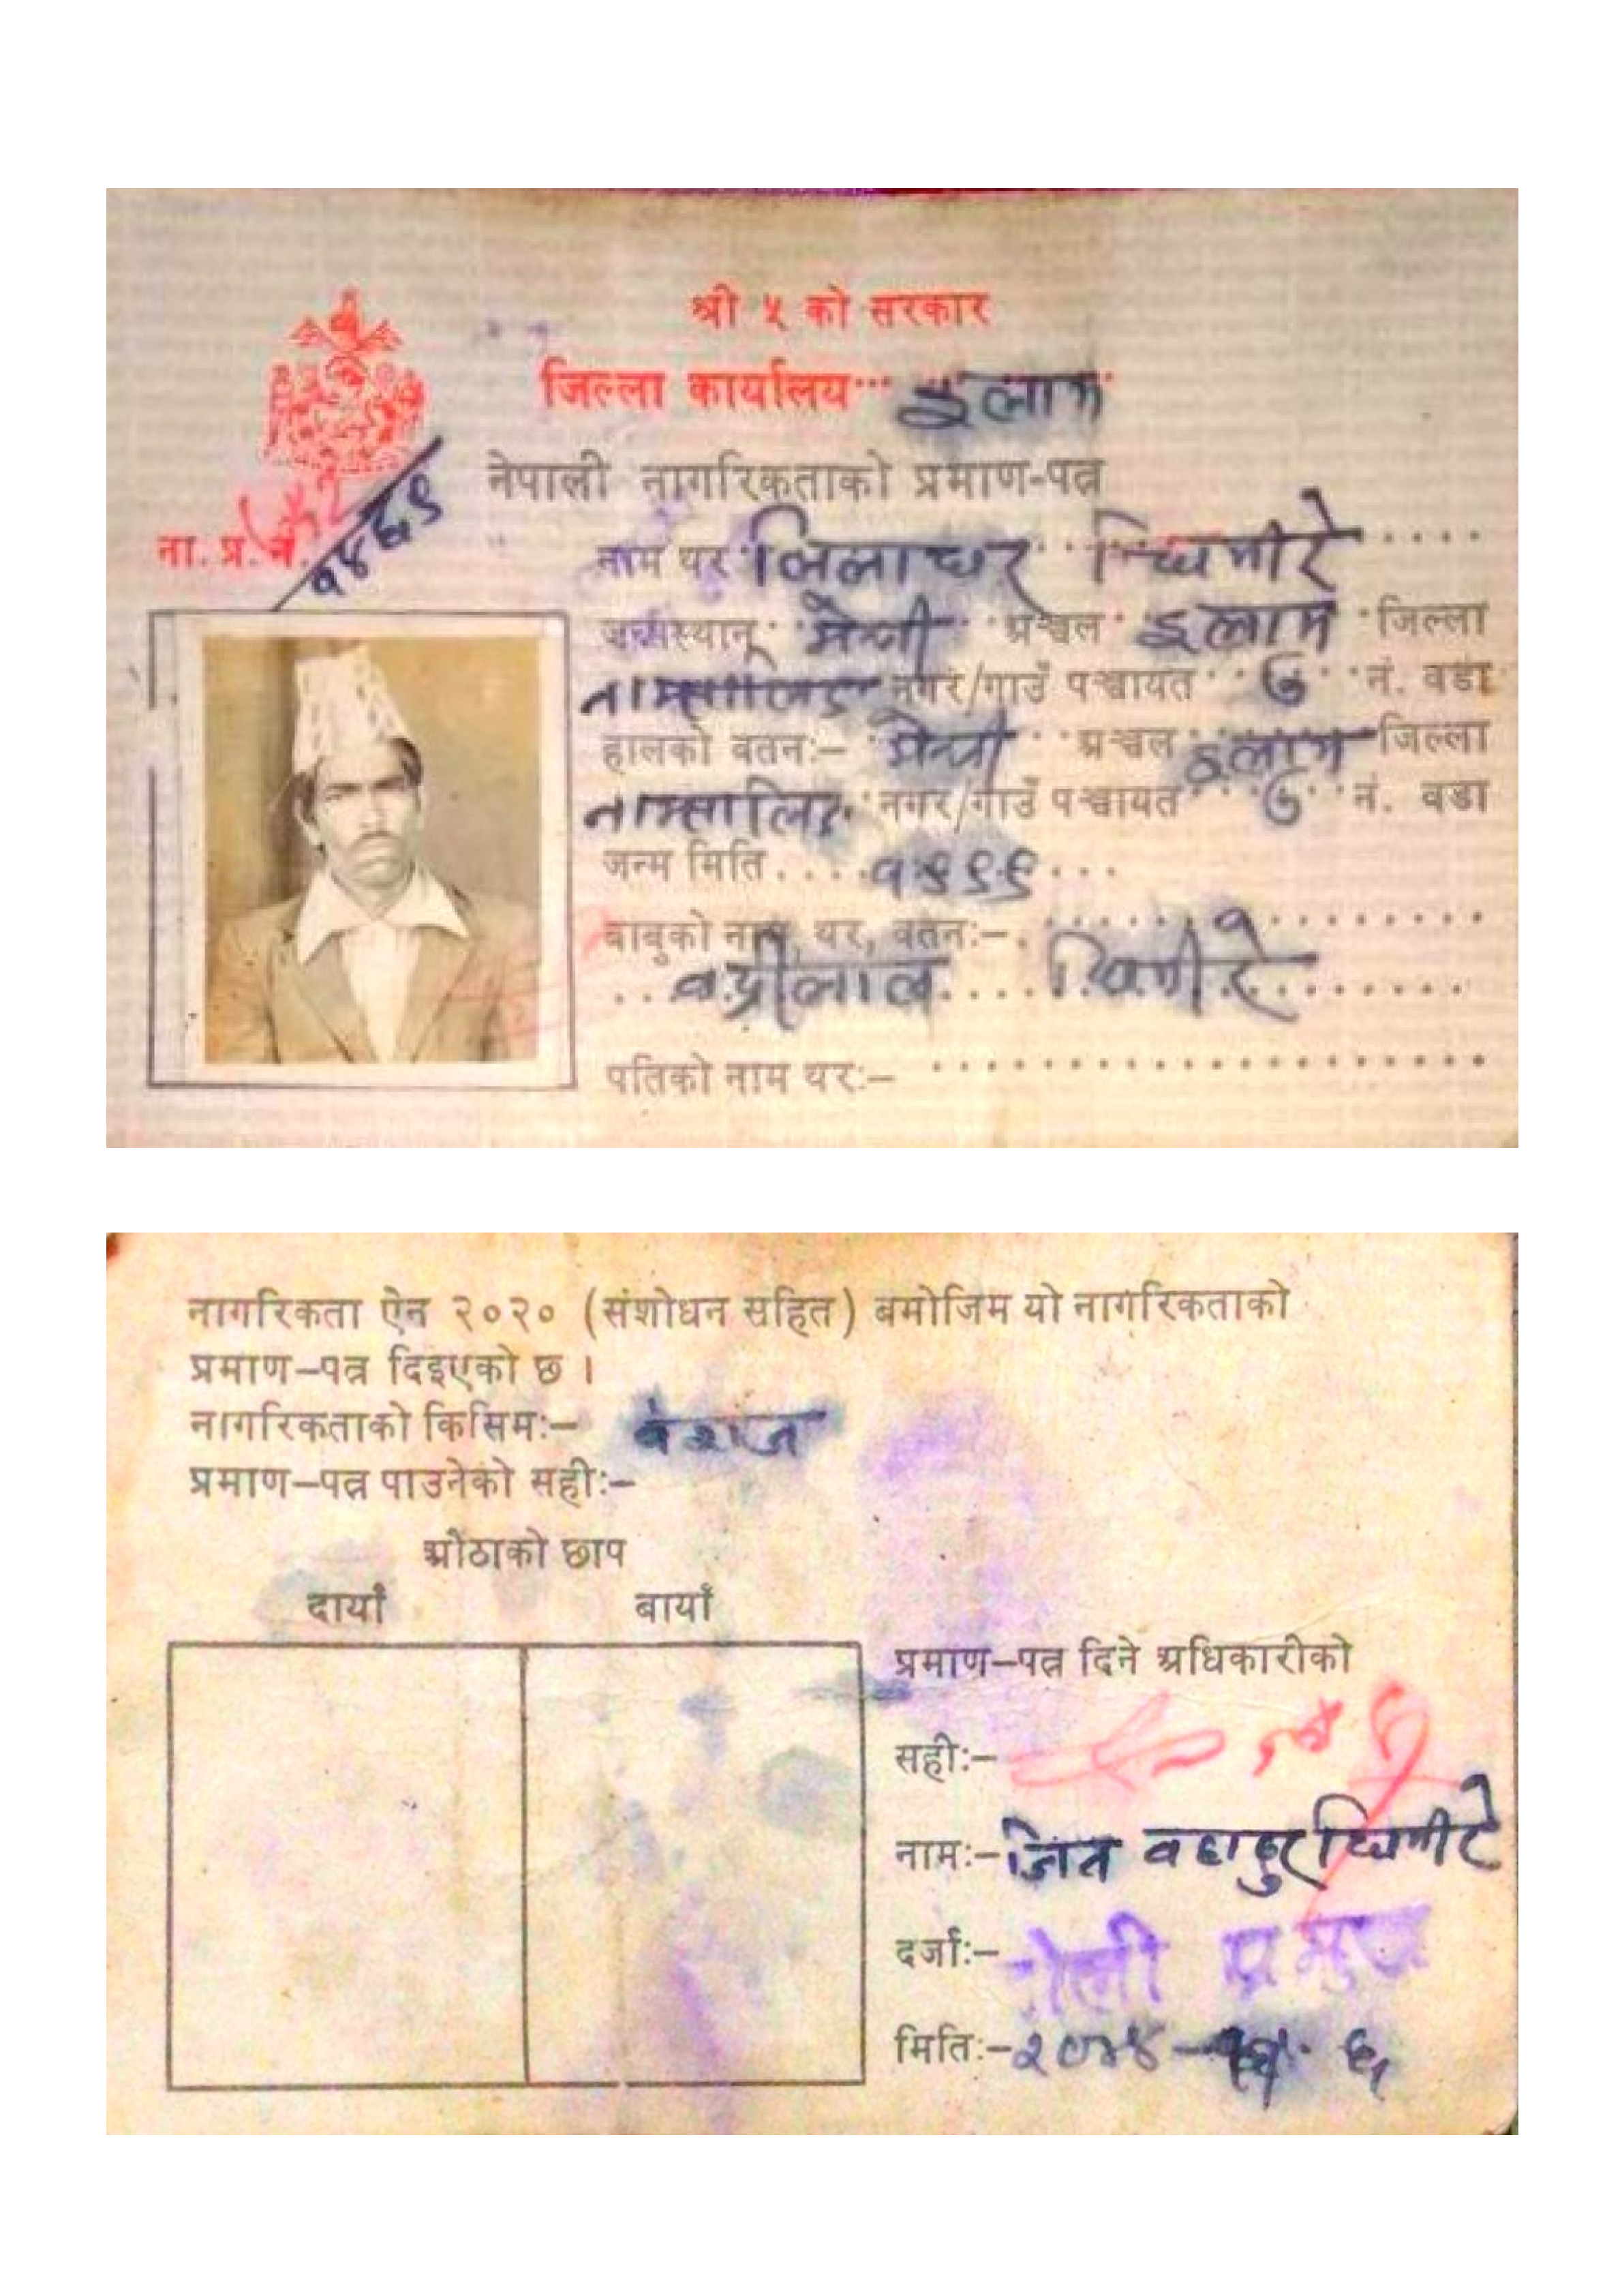 श्री ५ को सरकार
जिल्ला कार्यालय इलाम
नेपाली नागरिकताको प्रमाण-पत्र
ना. प्र. नं.
नाम थर लिलाधर घिमीरे
जन्मस्थान मेची अञ्चल इलाम जिल्ला
नाम्सालिङ नगर/गाउँ पञ्चायत ७ नं. वडा
हालको वतनः– मेची अञ्चल इलाम जिल्ला
नाम्सालिङ नगर/गाउँ पञ्चायत ७ नं. वडा
जन्म मिति १९९९
बाबुको नाम, थर, वतनः–
वद्रीलाल घिमीरे
पतिको नाम थरः–
नागरिकता ऐन २०२० (संशोधन सहित) बमोजिम यो नागरिकताको
प्रमाण–पत्र दिइएको छ ।
नागरिकताको किसिमः– वंशज
प्रमाण–पत्र पाउनेको सहीः–
औठाको छाप
दायाँ बायाँ
प्रमाण–पत्र दिने अधिकारीको
सहीः–
नामः– जित वहादुर घिमीरे
दर्जाः– टोली प्रमुख
मितिः–